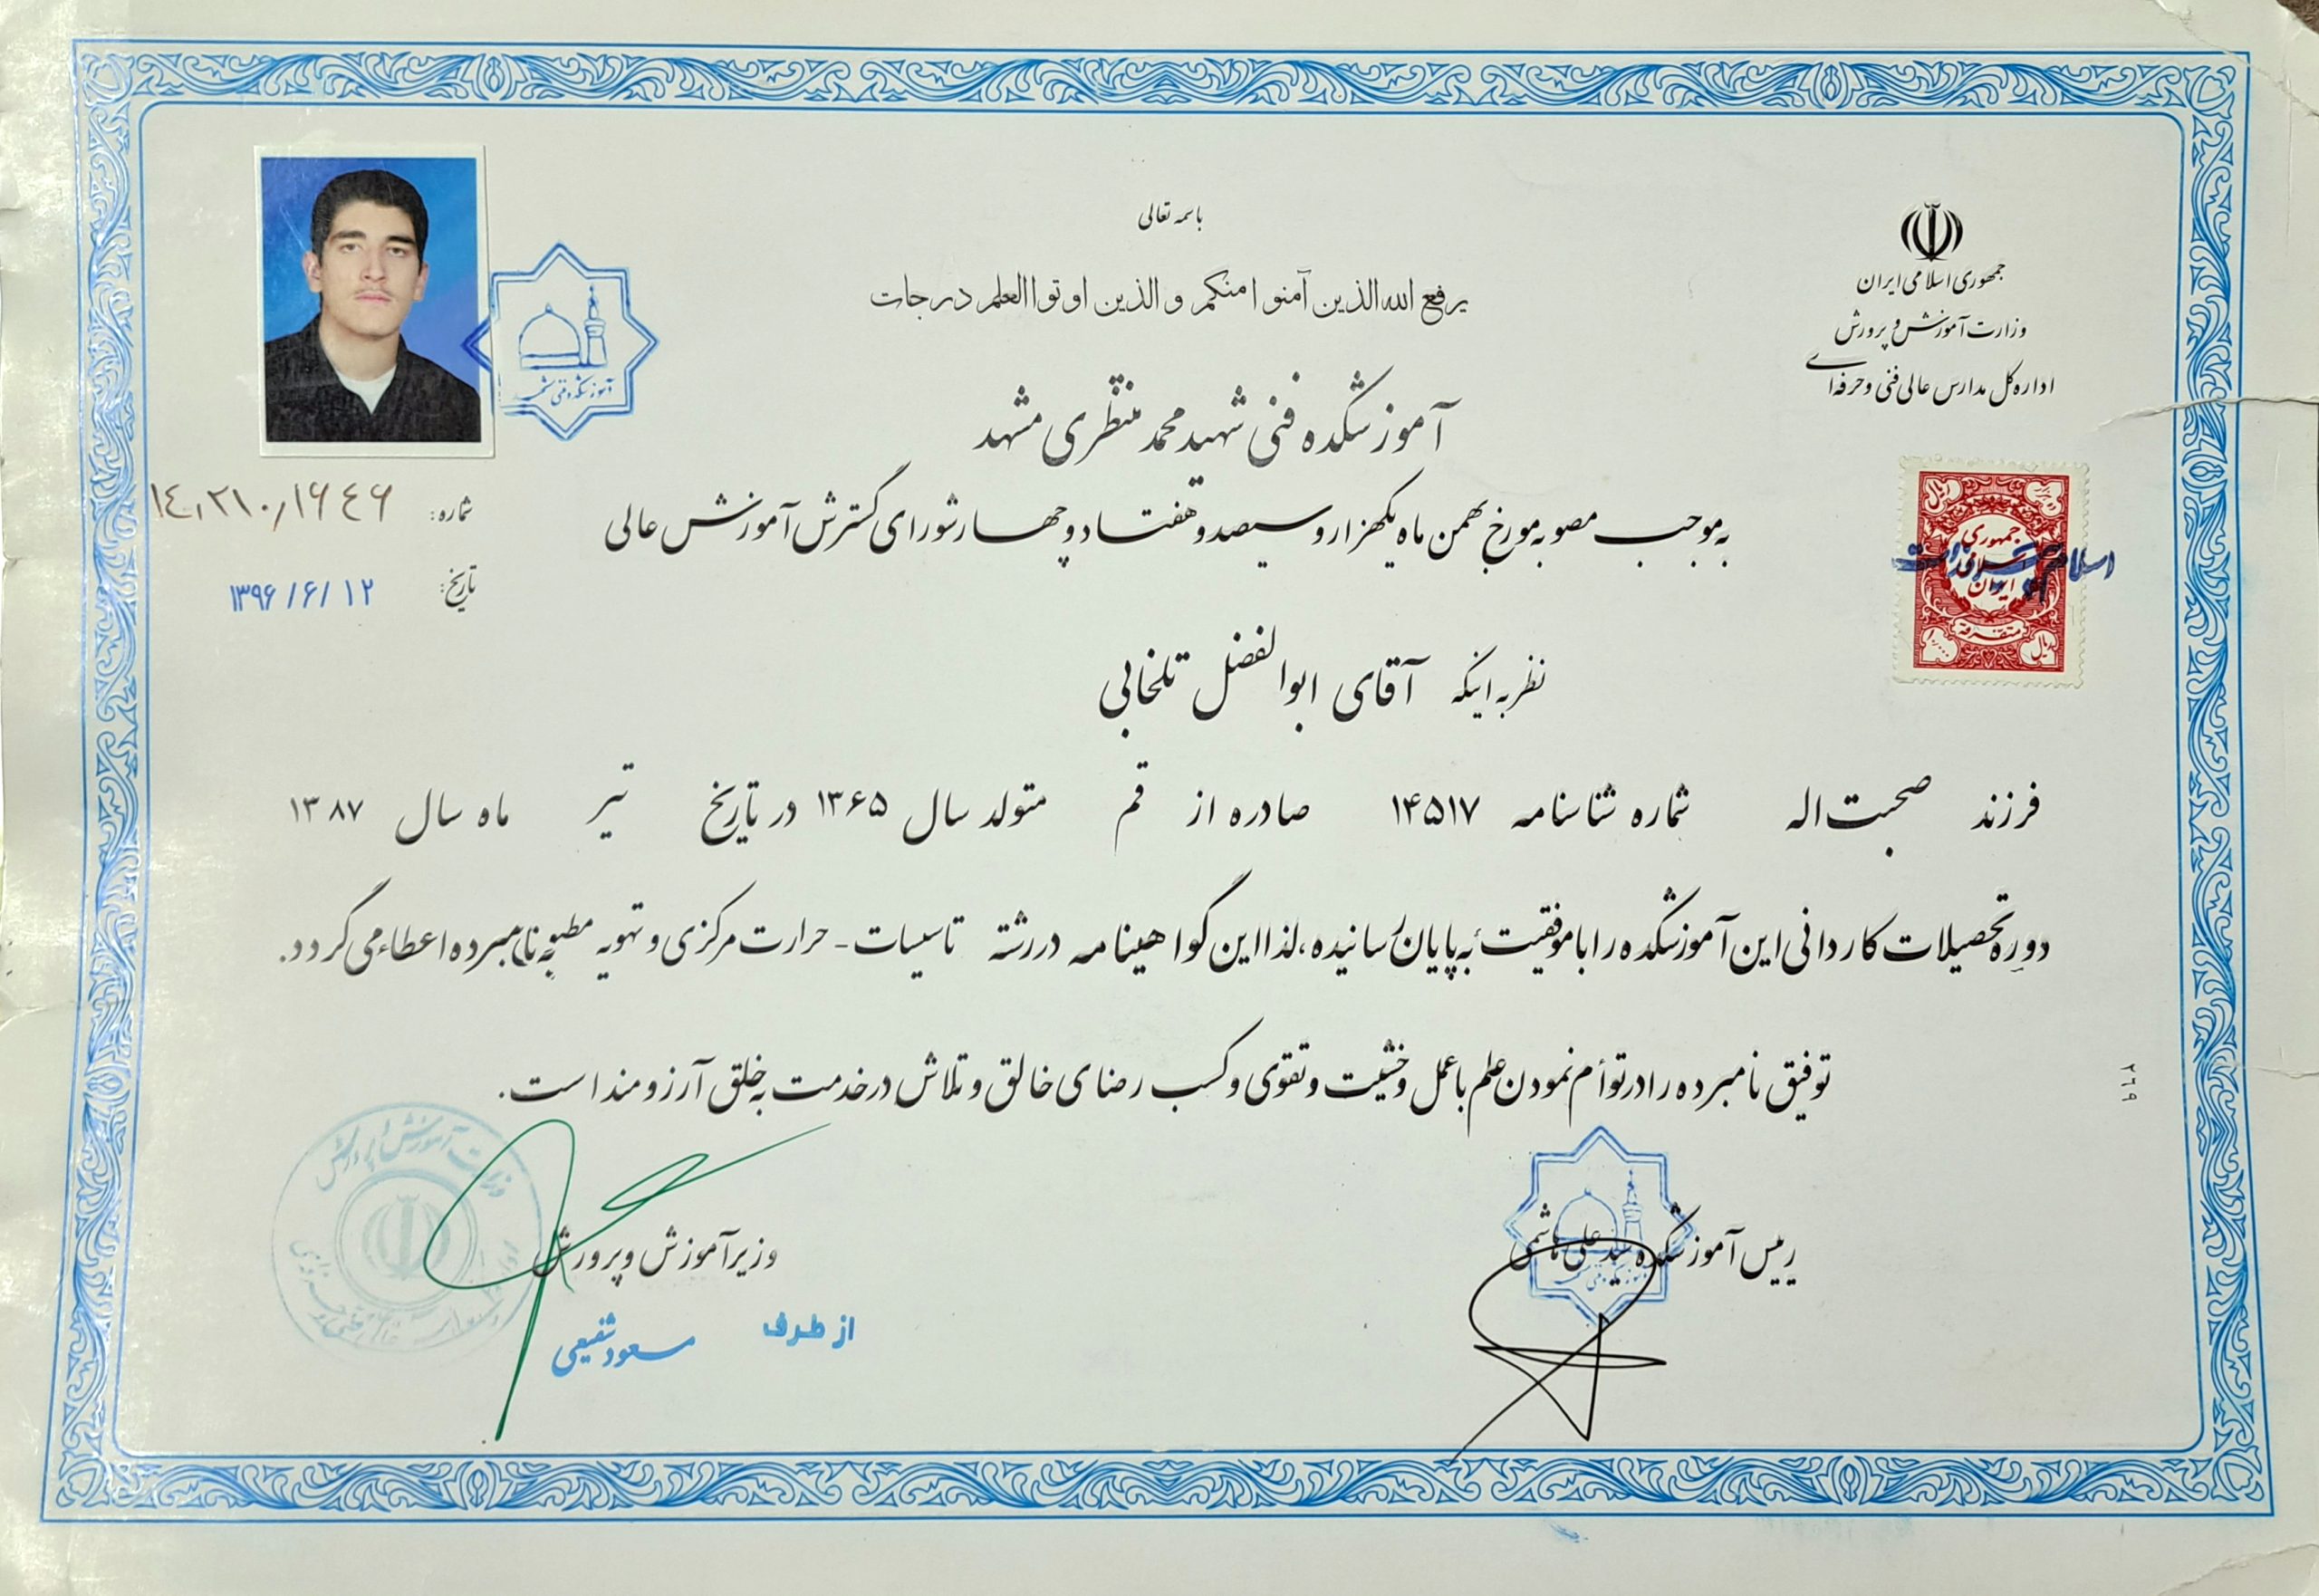 باسمه تعالی
یرفع الله الذین آمنوا منکم و الذین اوتوا العلم درجات
جمهوری اسلامی ایران
وزارت آموزش و پرورش
اداره کل مدارس عالی فنی و حرفه‌ای
آموزشکده فنی شهید محمد منتظری مشهد
شماره: ۱٤٫۲۱۰٫۱۶٤۶
تاریخ: ۱۳۹۶/۶/۱۲
به موجب مصوبه مورخ بهمن ماه یکهزار و سیصد و هفتاد و چهار شورای گسترش آموزش عالی
جمهوری
اسلامی
ایران
متفرقه
ریال
نظر به اینکه آقای ابوالفضل تلخابی
فرزند صحبت اله شماره شناسنامه ۱۴۵۱۷ صادره از قم متولد سال ۱۳۶۵ در تاریخ تیر ماه سال ۱۳۸۷
دوره تحصیلات کاردانی این آموزشکده را با موفقیت به پایان رسانیده، لذا این گواهینامه در رشته تاسیسات - حرارت مرکزی و تهویه مطبوع به نامبرده اعطاء می گردد.
توفیق نامبرده را در توأم نمودن علم با عمل و خشیت و تقوی و کسب رضای خالق و تلاش در خدمت به خلق آرزومند است.
۲۶۹
رییس آموزشکده سید علی هاشمی
وزیر آموزش و پرورش
از طرف مسعود شفیعی